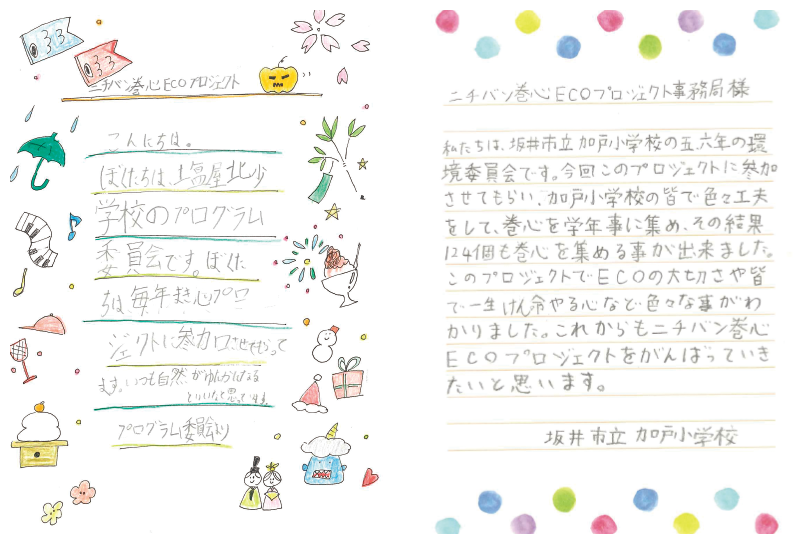 ニチバン巻心ECOプロジェクト
こんにちは。
ぼくたちは、塩屋北少
学校のプログラム
委員会です。ぼくた
ちは毎年まき心プロ
ジェクトに参加させてもらって
ます。いつも自然がゆたかになる
といいなと思ってます。
プログラム委員会より
ニチバン巻心ECOプロジェクト事務局様
私たちは、坂井市立加戸小学校の五、六年の環
境委員会です。今回このプロジェクトに参加
させてもらい、加戸小学校の皆で色々工夫
をして、巻心を学年事に集め、その結果
124個も巻心を集める事が出来ました。
このプロジェクトでECOの大切さや皆
で一生けん命やる心など色々な事がわ
かりました。これからもニチバン巻心
ECOプロジェクトをがんばっていき
たいと思います。
坂井市立 加戸小学校